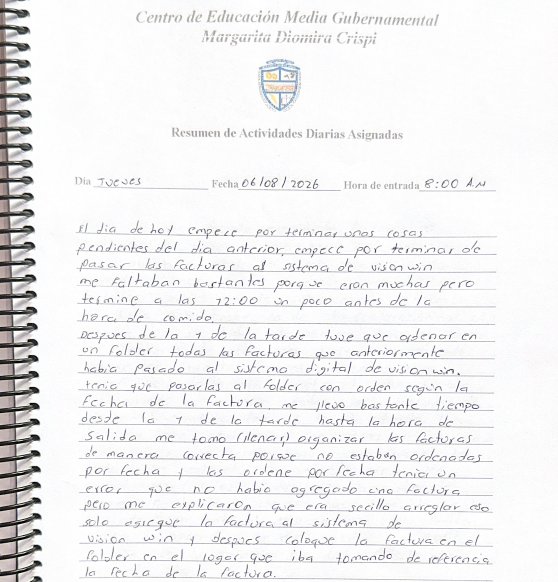 Centro de Educación Media Gubernamental
Margarita Diomira Crispi
Resumen de Actividades Diarias Asignadas
Día Jueves Fecha 06/08/2026 Hora de entrada 8:00 A.M
El dia de hoy empece por terminar unas cosas
pendientes del dia anterior, empece por terminar de
pasar las facturas al sistema de visionwin
me faltaban bastantes porque eran muchas pero
termine a las 12:00 un poco antes de la
hora de comida.
Despues de la 1 de la tarde tuve que ordenar en
un folder todas las facturas que anteriormente
habia pasado al sistema digital de vision win.
tenia que pasarlas al folder con orden según la
fecha de la factura, me llevo bastante tiempo
desde la 1 de la tarde hasta la hora de
salida me tomo (llenar) organizar las facturas
de manera correcta porque no estaban ordenadas
por fecha y las ordene por fecha tenia un
error que no habia agregado una factura
pero me explicaron que era secillo arreglar eso
solo agregue la factura al sistema de
vision win y despues coloque la factura en el
folder en el lugar que iba tomando de referencia
la fecha de la factura.